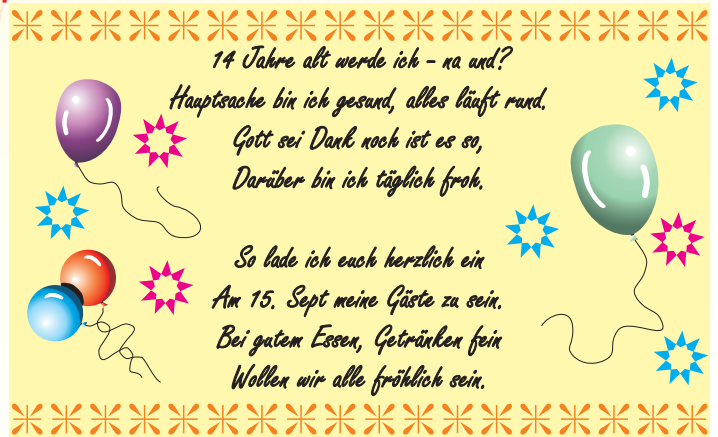 14 Jahre alt werde ich - na und?
Hauptsache bin ich gesund, alles läuft rund.
Gott sei Dank noch ist es so,
Darüber bin ich täglich froh.
So lade ich euch herzlich ein
Am 15. Sept meine Gäste zu sein.
Bei gutem Essen, Getränken fein
Wollen wir alle fröhlich sein.